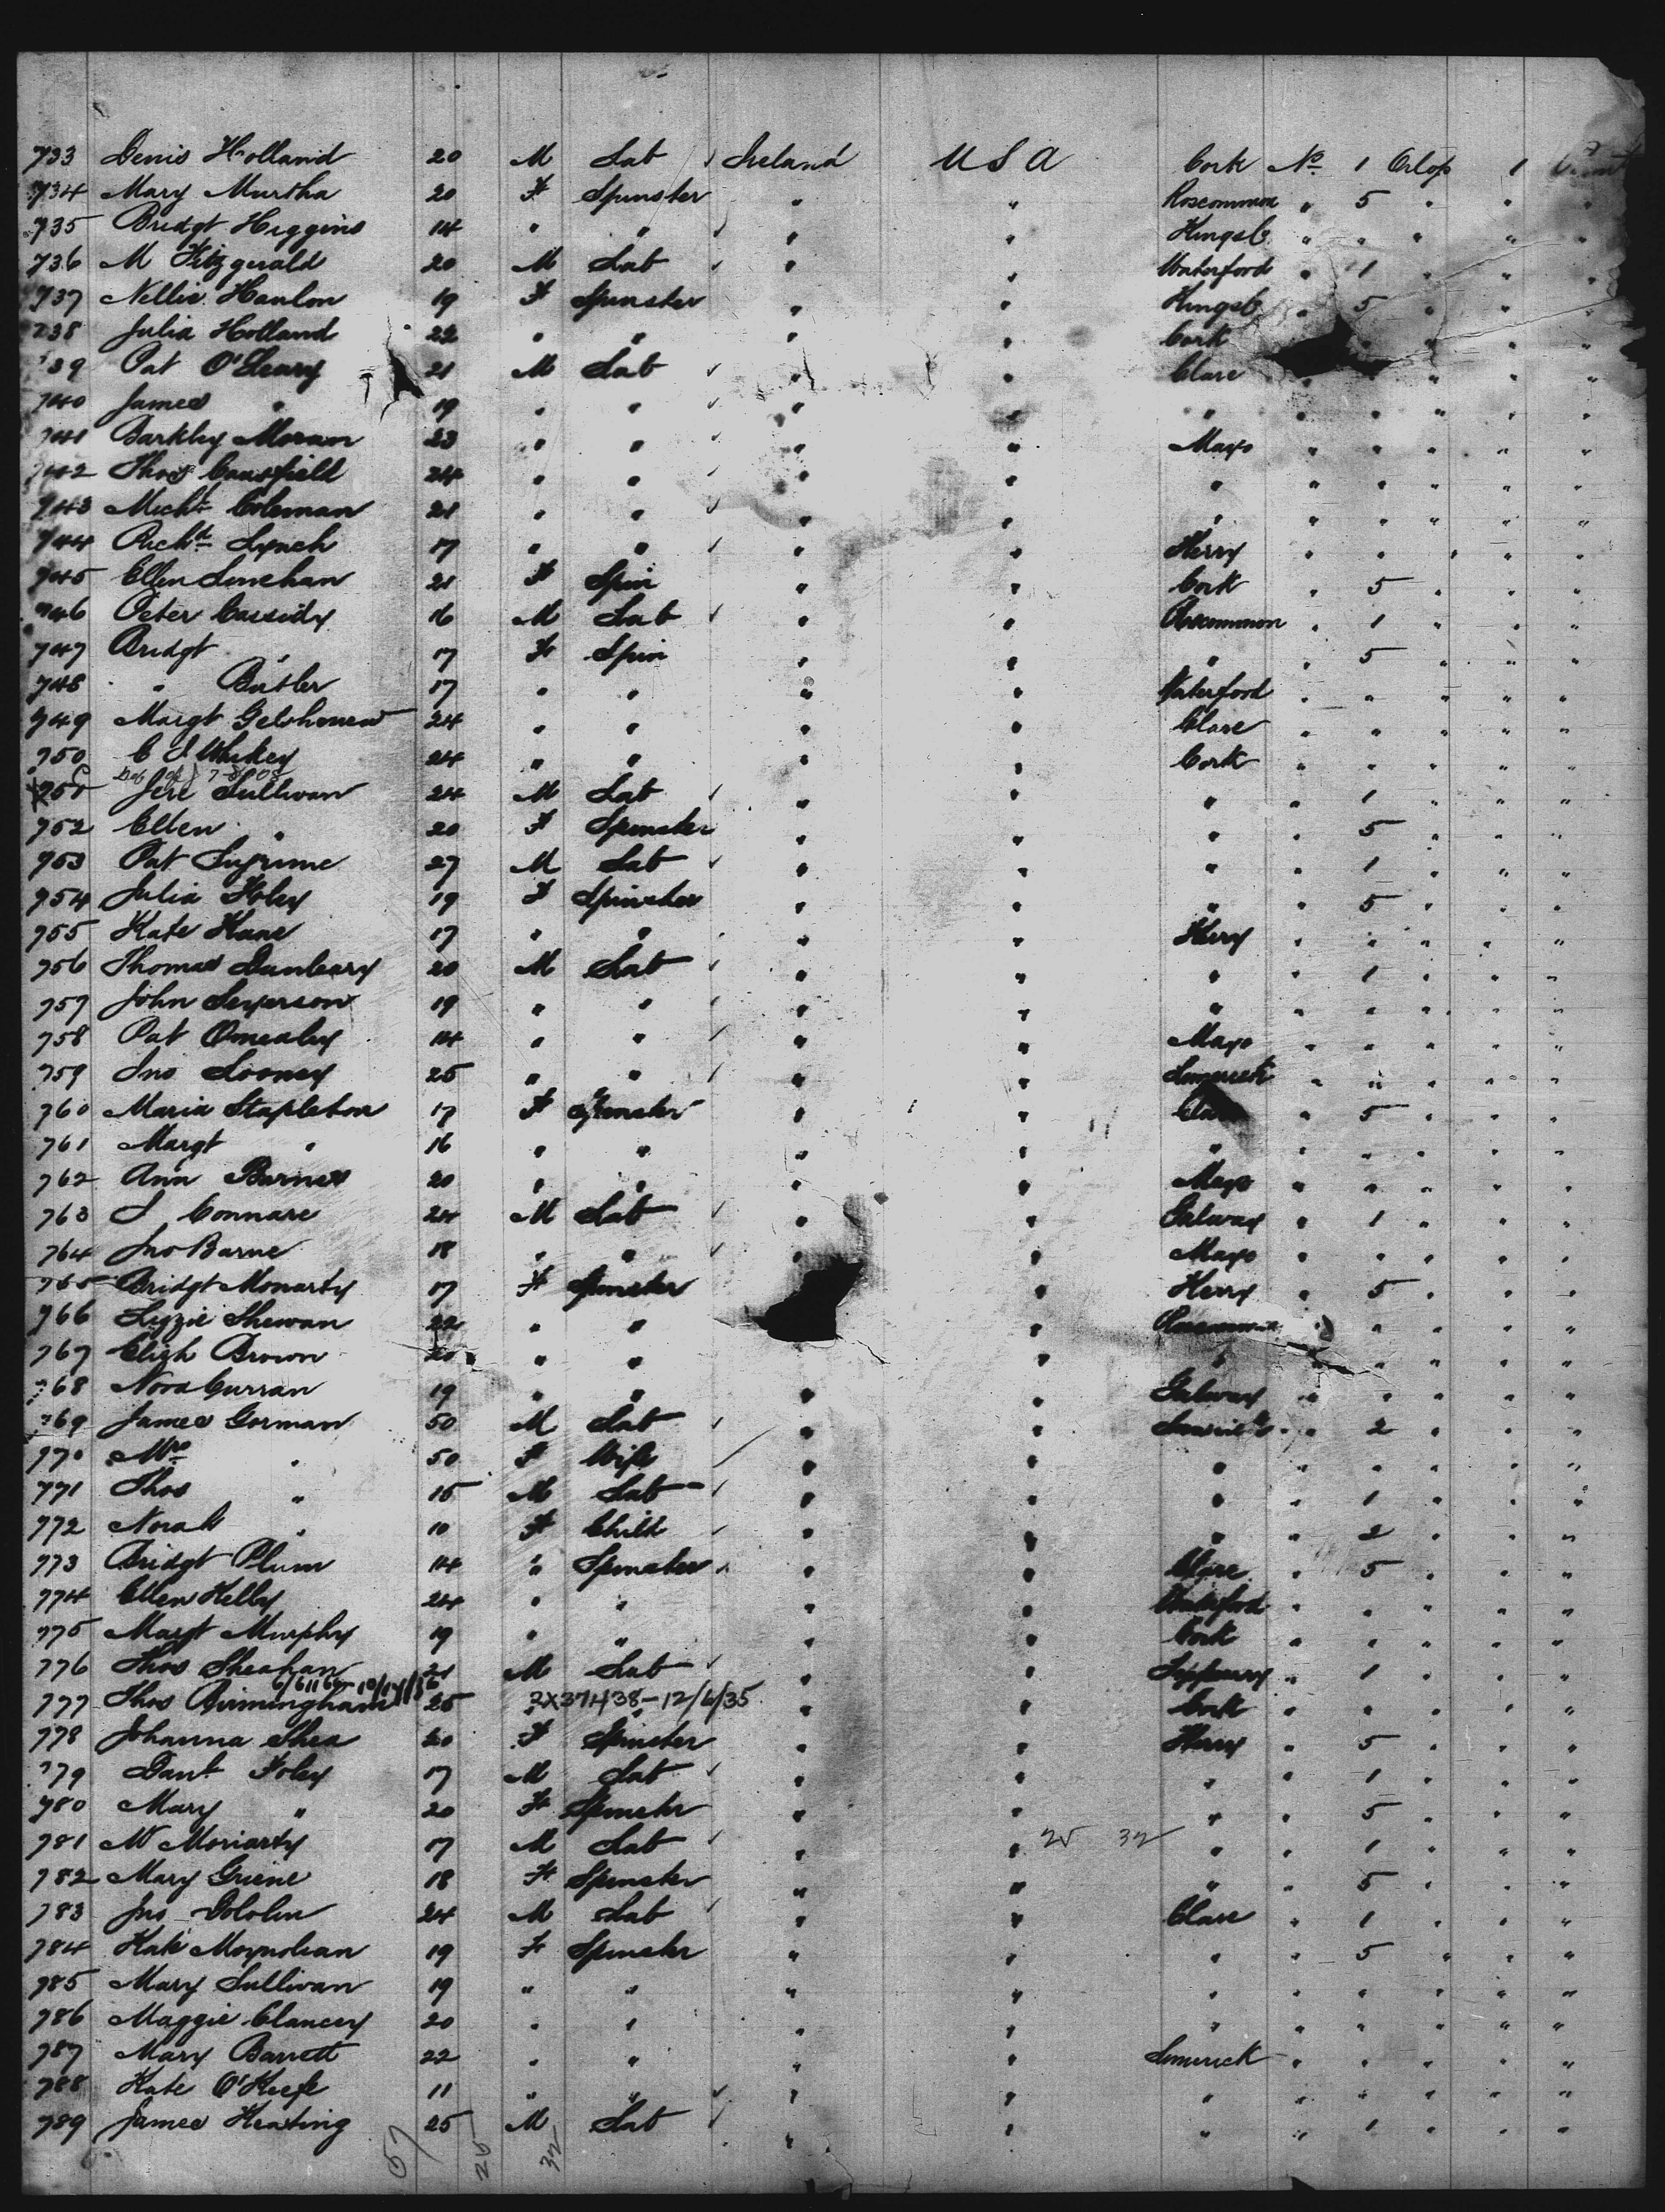 733 Denis Holland 20 M Lab ✓ Ireland U S A Cork No 1 Orlop 1
734 Mary Murtha 20 F Spinster " " Roscommon " 5 " " "
735 Bridgt Higgins 14 " " ✓ " " Kings Co " " " " "
736 M Fitzgerald 20 M Lab ✓ " " Waterford " 1 " " "
737 Nellie Hanlon 19 F Spinster " " Kings Co " 5 " " "
738 Julia Holland 22 " " " " Cork " " "
739 Pat O'Leary 21 M Lab ✓ " " Clare " " " "
740 James " 19 " " ✓ " " " " " " " "
741 Barkley Moran 23 " " ✓ " " Mayo " " " " "
742 Thos 24 " " ✓ " " " " " " " "
743 Michl Coleman 21 " " ✓ " " " " " " " "
744 Richd Lynch 17 " " ✓ " " Kerry " " " " "
745 Ellen Linehan 21 F Spin " " Cork " 5 " " "
746 Peter Cassidy 16 M Lab ✓ " " Roscommon " 1 " " "
747 Bridgt " 17 F Spin " " " " 5 " " "
748 " Butler 17 " " " " Waterford " " " " "
749 Margt 24 " " " " Clare " " " " "
750 C J 24 " " " " Cork " " " " "
751 Jere Sullivan 24 M Lab ✓ " " " " 1 " " "
752 Ellen " 20 F Spinster " " " " 5 " " "
753 Pat 27 M Lab ✓ " " " " 1 " " "
754 Julia Foley 19 F Spinster " " " " 5 " " "
755 Kate Kane 17 " " " " Kerry " " " " "
756 Thomas Dunleary 20 M Lab ✓ " " " " 1 " " "
757 John 19 " " ✓ " " " " " " " "
758 Pat Omealey 14 " " ✓ " " Mayo " " " " "
759 Jno Looney 25 " " ✓ " " Limerick " " " " "
760 Maria Stapleton 17 F Spinster " " Clare " 5 " " "
761 Margt " 16 " " " " " " " " " "
762 Ann Barnes 20 " " " " Mayo " " " " "
763 J Connare 24 M Lab ✓ " " Galway " 1 " " "
764 Jno Barne 18 " " ✓ " " Mayo " " " " "
765 Bridgt Moriarty 17 F Spinster " Kerry " 5 " " "
766 Lizzie Shewan 22 " " " " " " " "
767 Brown 20 " " " " " " " " "
768 Nora Curran 19 " " " " Galway " " " " "
769 James Gorman 50 M Lab ✓ " " Limerick " 2 " " "
770 Mrs " 50 F Wife ✓ " " " " " " " "
771 Thos " 15 M Lab ✓ " " " " 1 " " "
772 Norah " 10 F Child ✓ " " " " 2 " " "
773 Bridgt Plum 14 " Spinster " " Clare " 5 " " "
774 Ellen Kelly 24 " " " " Waterford " " " " "
775 Margt Murphy 19 " " " " Cork " " " " "
776 Thos Sheahan 21 M Lab ✓ " " Tipperary " 1 " " "
777 Thos Birmingham 25 2X37438-12/6/35 Cork " " " " "
778 Johanna Shea 20 F Spinster " " Kerry " 5 " " "
779 Danl Foley 17 M Lab ✓ " " " " 1 " " "
780 Mary " 20 F Spinster " " " " 5 " " "
781 M Moriarty 17 M Lab ✓ " " 25 32 " " 1 " " "
782 Mary Griene 18 F Spinster " " " " 5 " " "
783 Jno 24 M Lab ✓ " " Clare " 1 " " "
784 Kate Moynihan 19 F Spinster " " " " 5 " " "
785 Mary Sullivan 19 " " " " " " " " " "
786 Maggie Clancey 20 " " " " " " " " " "
787 Mary Barrett 22 " " " " Limerick " " " " "
788 Kate O'Keefe 11 " " ✓ " " " " " " " "
789 James Keating 25 M Lab ✓ " " " " 1 " " "
57 25 32